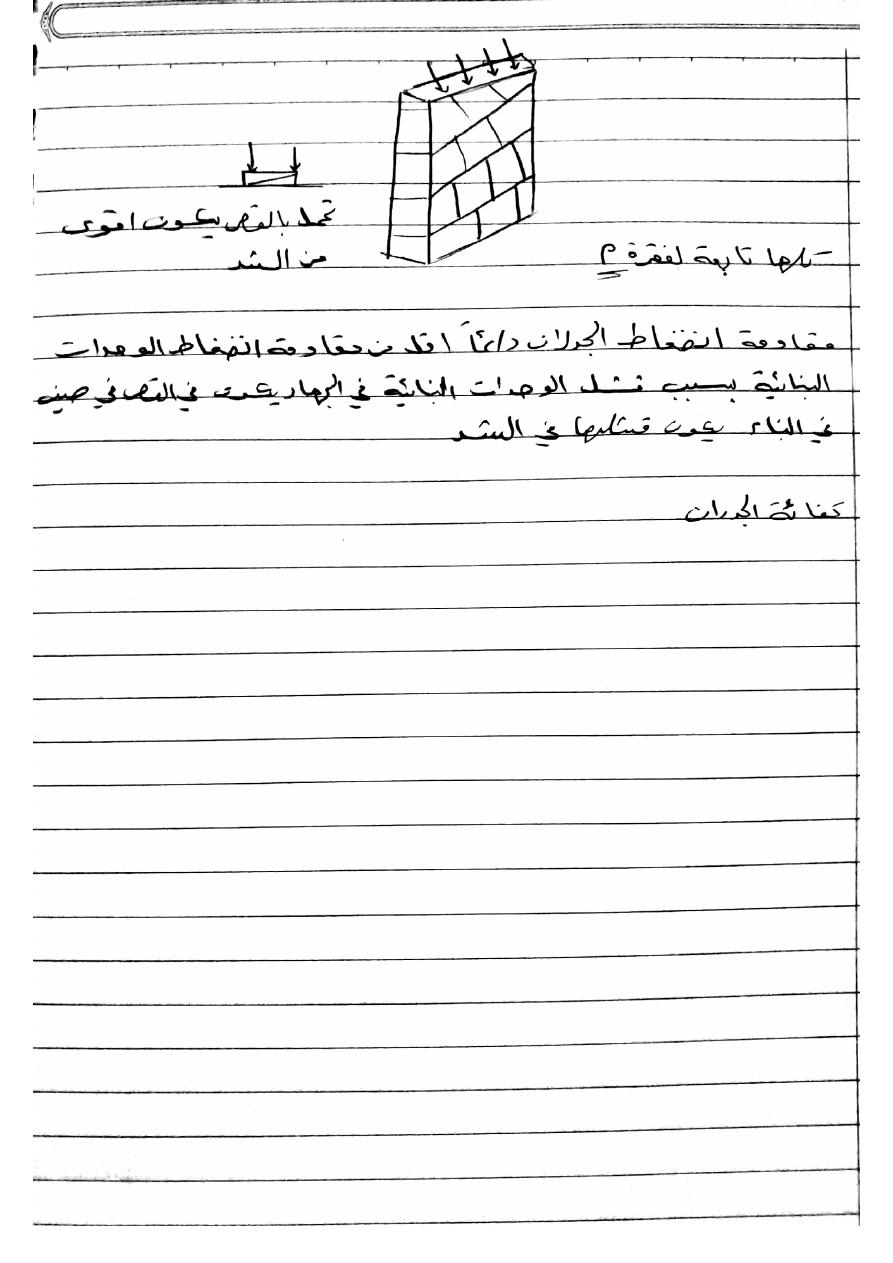 تحمل بالقص يكون اقوى
من الشد
- كلها تابعة لفقرة م
مقاومة انضغاط الجدران دائماً اقل من مقاومة انضغاط الوحدات
البنائية بسبب فشل الوحدات البنائية في الجهاز يكون في القص في حين
في البناء يكون فشلها في الشد
كفائة الجدران